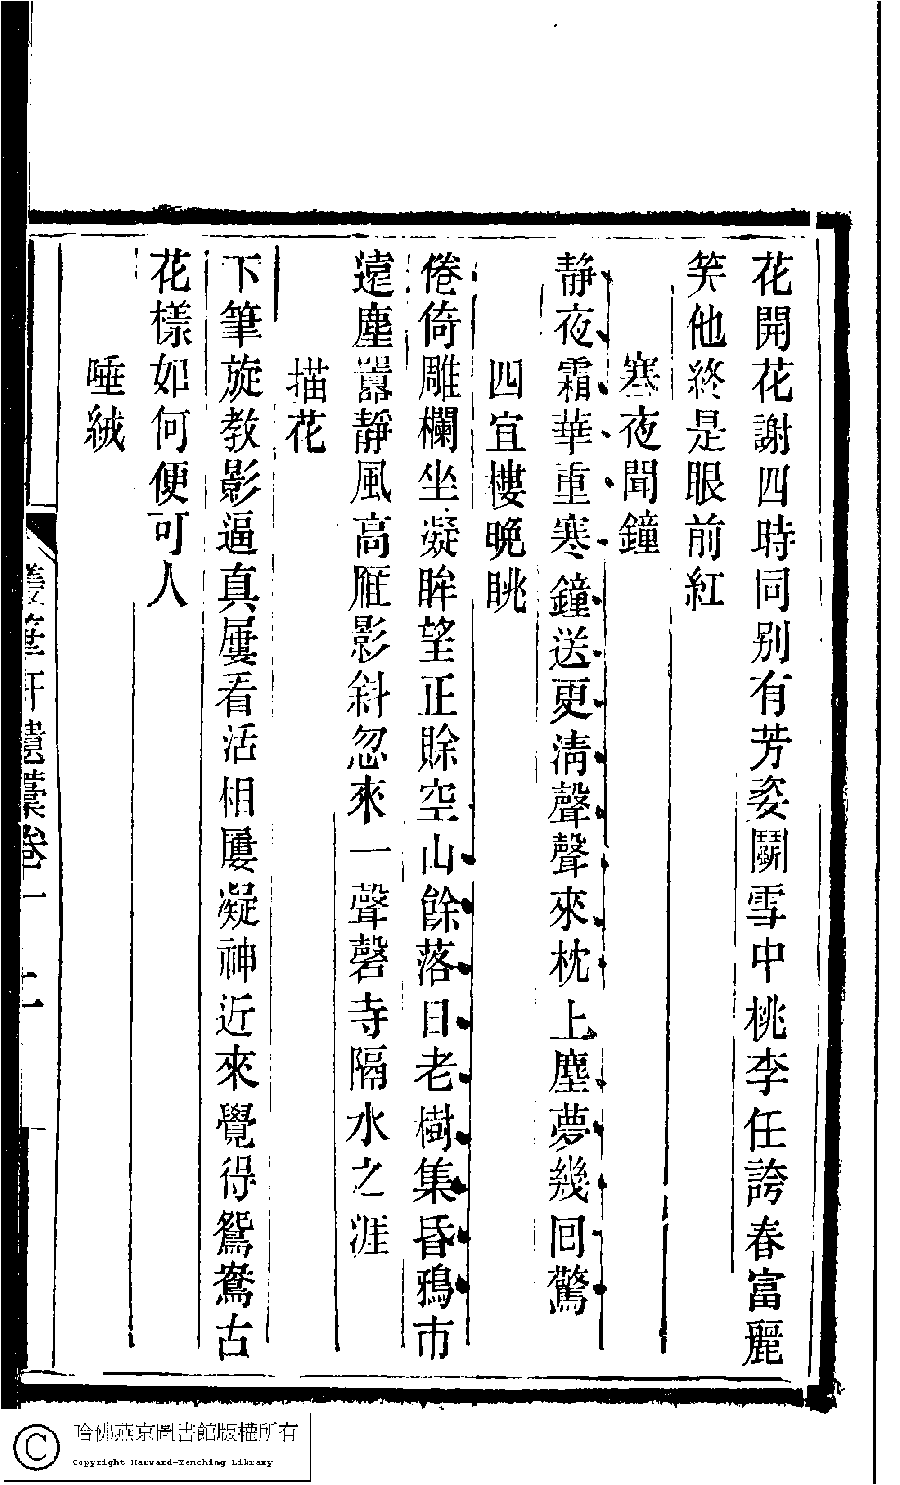 花開花謝四時同別有芳姿鬭雪中桃李任誇春富麗
笑他終是眼前紅
寒夜聞鐘
靜夜霜華重寒鐘送更清聲聲來枕上塵夢幾回驚
四宜樓晚眺
倦倚雕欄坐凝眸望正賒空山餘落日老樹集昏鴉市
遠塵囂靜風高雁影斜忽來一聲磬寺隔水之涯
描花
下筆旋教影逼真屢看活相屢凝神近來覺得鴛鴦古
花樣如何便可人
唾絨
筆軒遺藁卷一
哈佛燕京圖書館版權所有
Copyright Harvard-Yenching Library